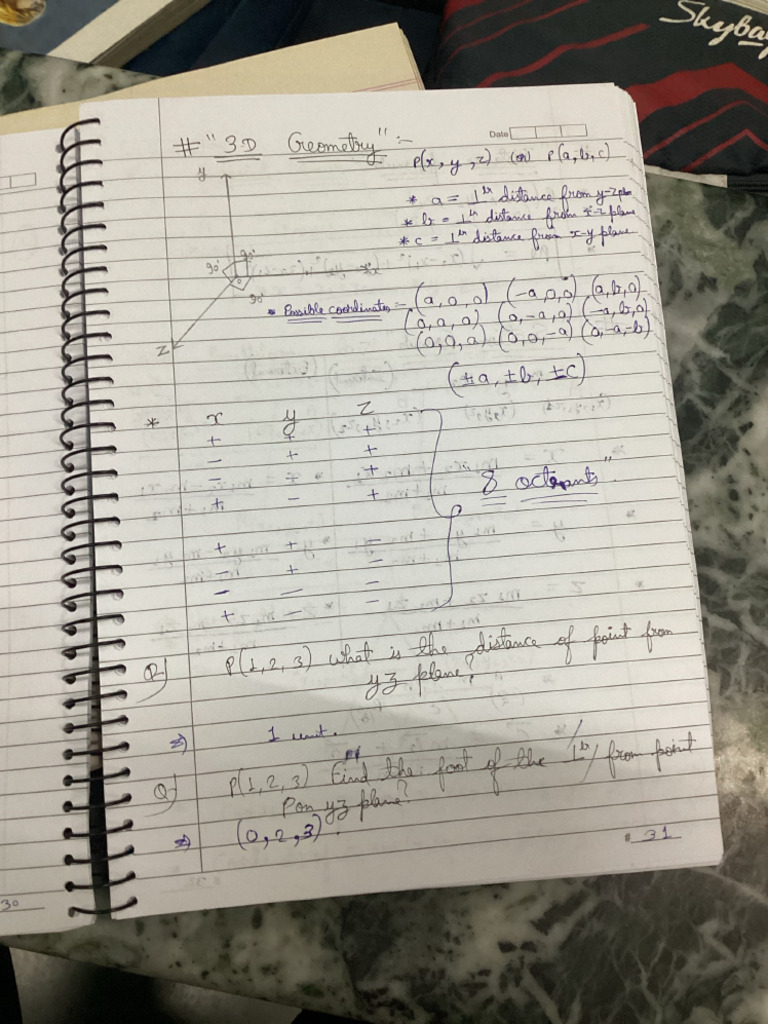 Skybag
Date
# "3D Geometry" :-
P(x, y, z) (or) P(a, b, c)
y
* a = ⊥ʳ distance from y-z
* b = ⊥ʳ distance from x-z plane
* c = ⊥ʳ distance from x-y plane
90°
90°
90°
z
* Possible coordinates :- (a, 0, 0) (-a, 0, 0) (a, b, 0)
(0, a, 0) (0, -a, 0) (-a, b, 0)
(0, 0, a) (0, 0, -a) (0, -a, -b)
(±a, ±b, ±c)
* x y z
+ + +
- + +
- - +
+ - +
8 octants"
+ + -
- + -
- - -
+ - -
Q) P(1, 2, 3) what is the distance of point from
yz plane?
⇒ 1 unit.
Q) P(1, 2, 3) Find the foot of the ⊥ʳ from point
P on yz plane?
⇒ (0, 2, 3).
# 31
30